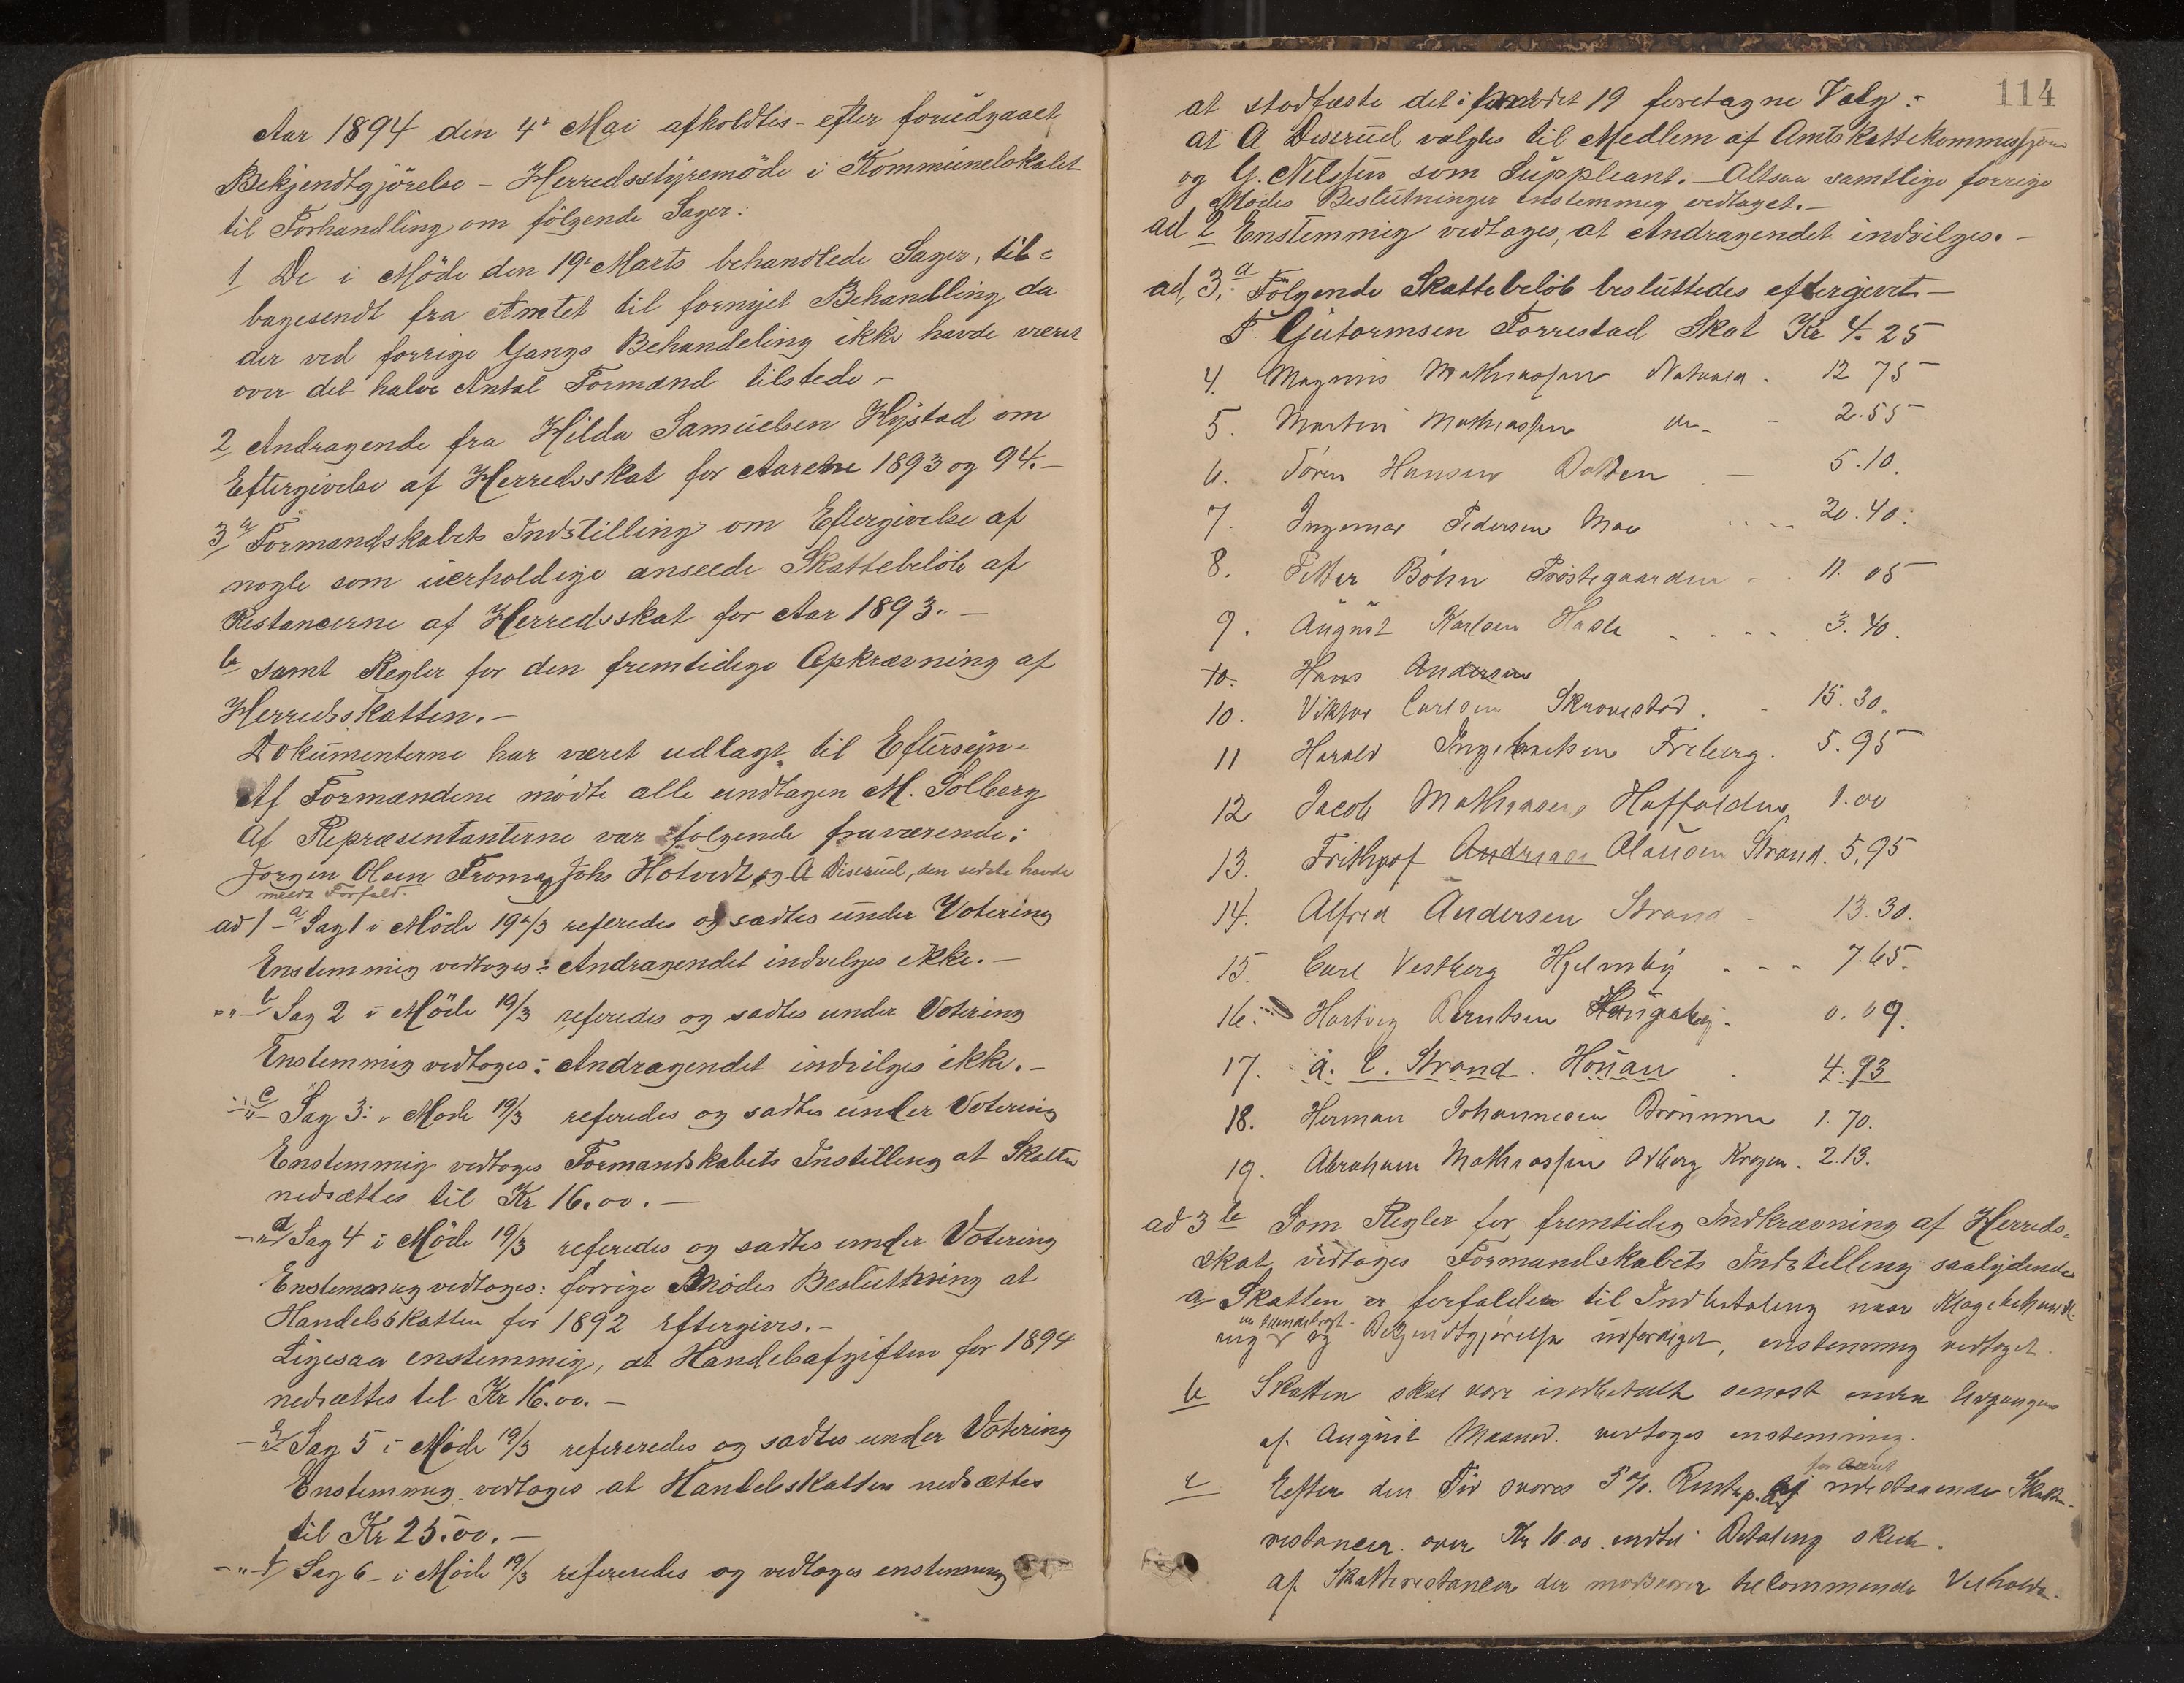 Aar 1894 den 4de Mai afholdtes – efter forudgaaet
Bekjendtgjörelse – Herredsstyremöde i Kommunelokalet
til Forhandling om fölgende Sager:
1 De i Möde den 19de Marts behandlede Sager, til=
bagesendt fra Amtet til fornyet Behandling da
der ved forrige Gangs Behandeling ikke havde været
over det halve Antal Formænd tilstede –
2 Andragende fra Hilda Samuelsen Hystad om
Eftergivelse af Herredsskat for Aarene 1893 og 94. –
3 a Formandskabets Indstilling om Eftergivelse af
nogle som uerholdige anseede Skattebelöb af
Restancerne af Herredsskat for Aar 1893. –
b samt Regler for den fremtidige Opkrævning af
Herredsskatten. –
Dokumenterne har været udlagt til Eftersyn –
Af Formændene mödte alle undtagen M. Solberg
Af Repræsentanterne var fölgende fraværende:
Jorgen Olsen From Johs Hotvedt og A Diserud, den sidste havde
meldt Forfald.
ad 1 – a Sag 1 i Möde 19de/3 referedes og sadtes under Votering
Enstemmig vedtoges: Andragendet indvilges ikke. –
" – b Sag 2 i Möde 19/3 referedes og sadtes under Votering
Enstemmig vedtoges: Andragendet indvilges ikke. –
" – c Sag 3 i Möde 19/3 referedes og sadtes under Votering
Enstemmig vedtoges Formandskabets Instilling at Skatten
nedsættes til Kr 16.00. –
– " d Sag 4 i Möde 19/3 referedes og sadtes under Votering
Enstemmig vedtoges: forrige Mödes Beslutning at
Handelsskatten for 1892 eftergives. –
Ligesaa enstemmig, at Handelsafgiften for 1894
nedsættes til Kr 16.00. –
– " e Sag 5 i Möde 19/3 refereredes og sadtes under Votering
Enstemmig vedtoges at Handelsskatten nedsættes
til Kr 25.00. –
– " – f Sag 6 – i Möde 19/3 refereredes og vedtoges enstemmig
114
at stadfæste det i 19 foretagne Valg:
at A Diserud valgtes til Medlem af Amtskattekommissjonen
og G. Nilssen som Suppleant. – Altsaa samtlige forrige
Mödes Beslutninger enstemmig vedtaget. –
ad 2 Enstemmig vedtoges, at Andragendet indvilges. –
ad 3. a Fölgende Skattebelöb besluttedes eftergivet –
Gutormsen Forrestad Skat Kr 4.25
4. Magnus Mathiassen . 12 75
5. Martin Mathiassen do – 2.55
6. Sören Hansen – 5.10.
7. Ingemar Pedersen Moe 20.40.
8. Petter Böhn Pröstegaarden – 11.05
9. August Karlsen Hasle . . . . 3.40.
10. Hans Andersen
10. Viktor Carlsen Skrovestad . – 15.30.
11 Harald Ingebretsen Freberg . 5.95
12 Jacob Mathiasen 1.00
13. Frithjof Andreas Olausen Strand. 5,95
14. Alfred Andersen Strand – 13.30.
15. Carl Vestberg Hjelmby . . . 7.65.
16. Hartvig Berntsen Haugeby . 0.09.
17. A. C. Strand. Honan . 4.93
18. Herman Johannesen 1.70.
19. Abraham Mathiassen Kragen . 2.13.
ad 3 b Som Regler for fremtidig Indkrævning af Herreds-
skat vedtoges Formandskabets Indstilling saalydende
a Skatten er forfalden til Indbetaling naar Klagebehandl-
er tilendebragt
ing og Bekjendtgjörelse udfærdiget, enstemmig vedtaget.
b Skatten skal være indbetalt senest inden Udgangen
af August Maaned. vedtoges enstemmig.
for Aaret
c Efter den Tid svares 5 % Rente p. A. af udestaaende Skatte-
restancer over Kr 10.00 indtil Betaling skeer.
af Skatterestancer der modsvarer